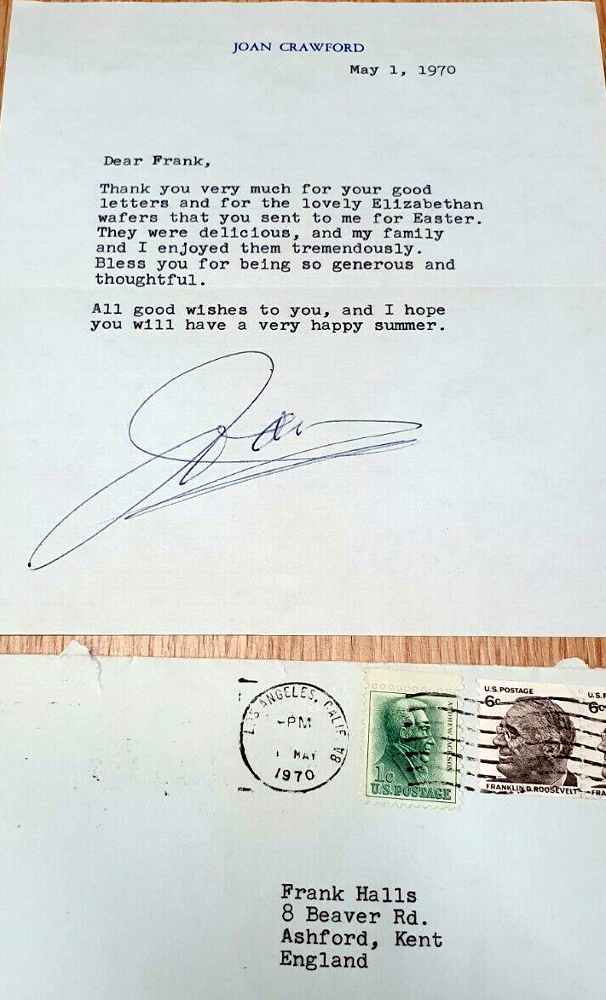 JOAN CRAWFORD
May 1, 1970
Dear Frank,
Thank you very much for your good
letters and for the lovely Elizabethan
wafers that you sent to me for Easter.
They were delicious, and my family
and I enjoyed them tremendously.
Bless you for being so generous and
thoughtful.
All good wishes to you, and I hope
you will have a very happy summer.
Joan
LOS ANGELES, CALIF
PM
1 MAY
1970
1c
U.S. POSTAGE
ANDREW JACKSON
U.S. POSTAGE
6c
FRANKLIN D. ROOSEVELT
U.S.P
6c
FRA
Frank Halls
8 Beaver Rd.
Ashford, Kent
England